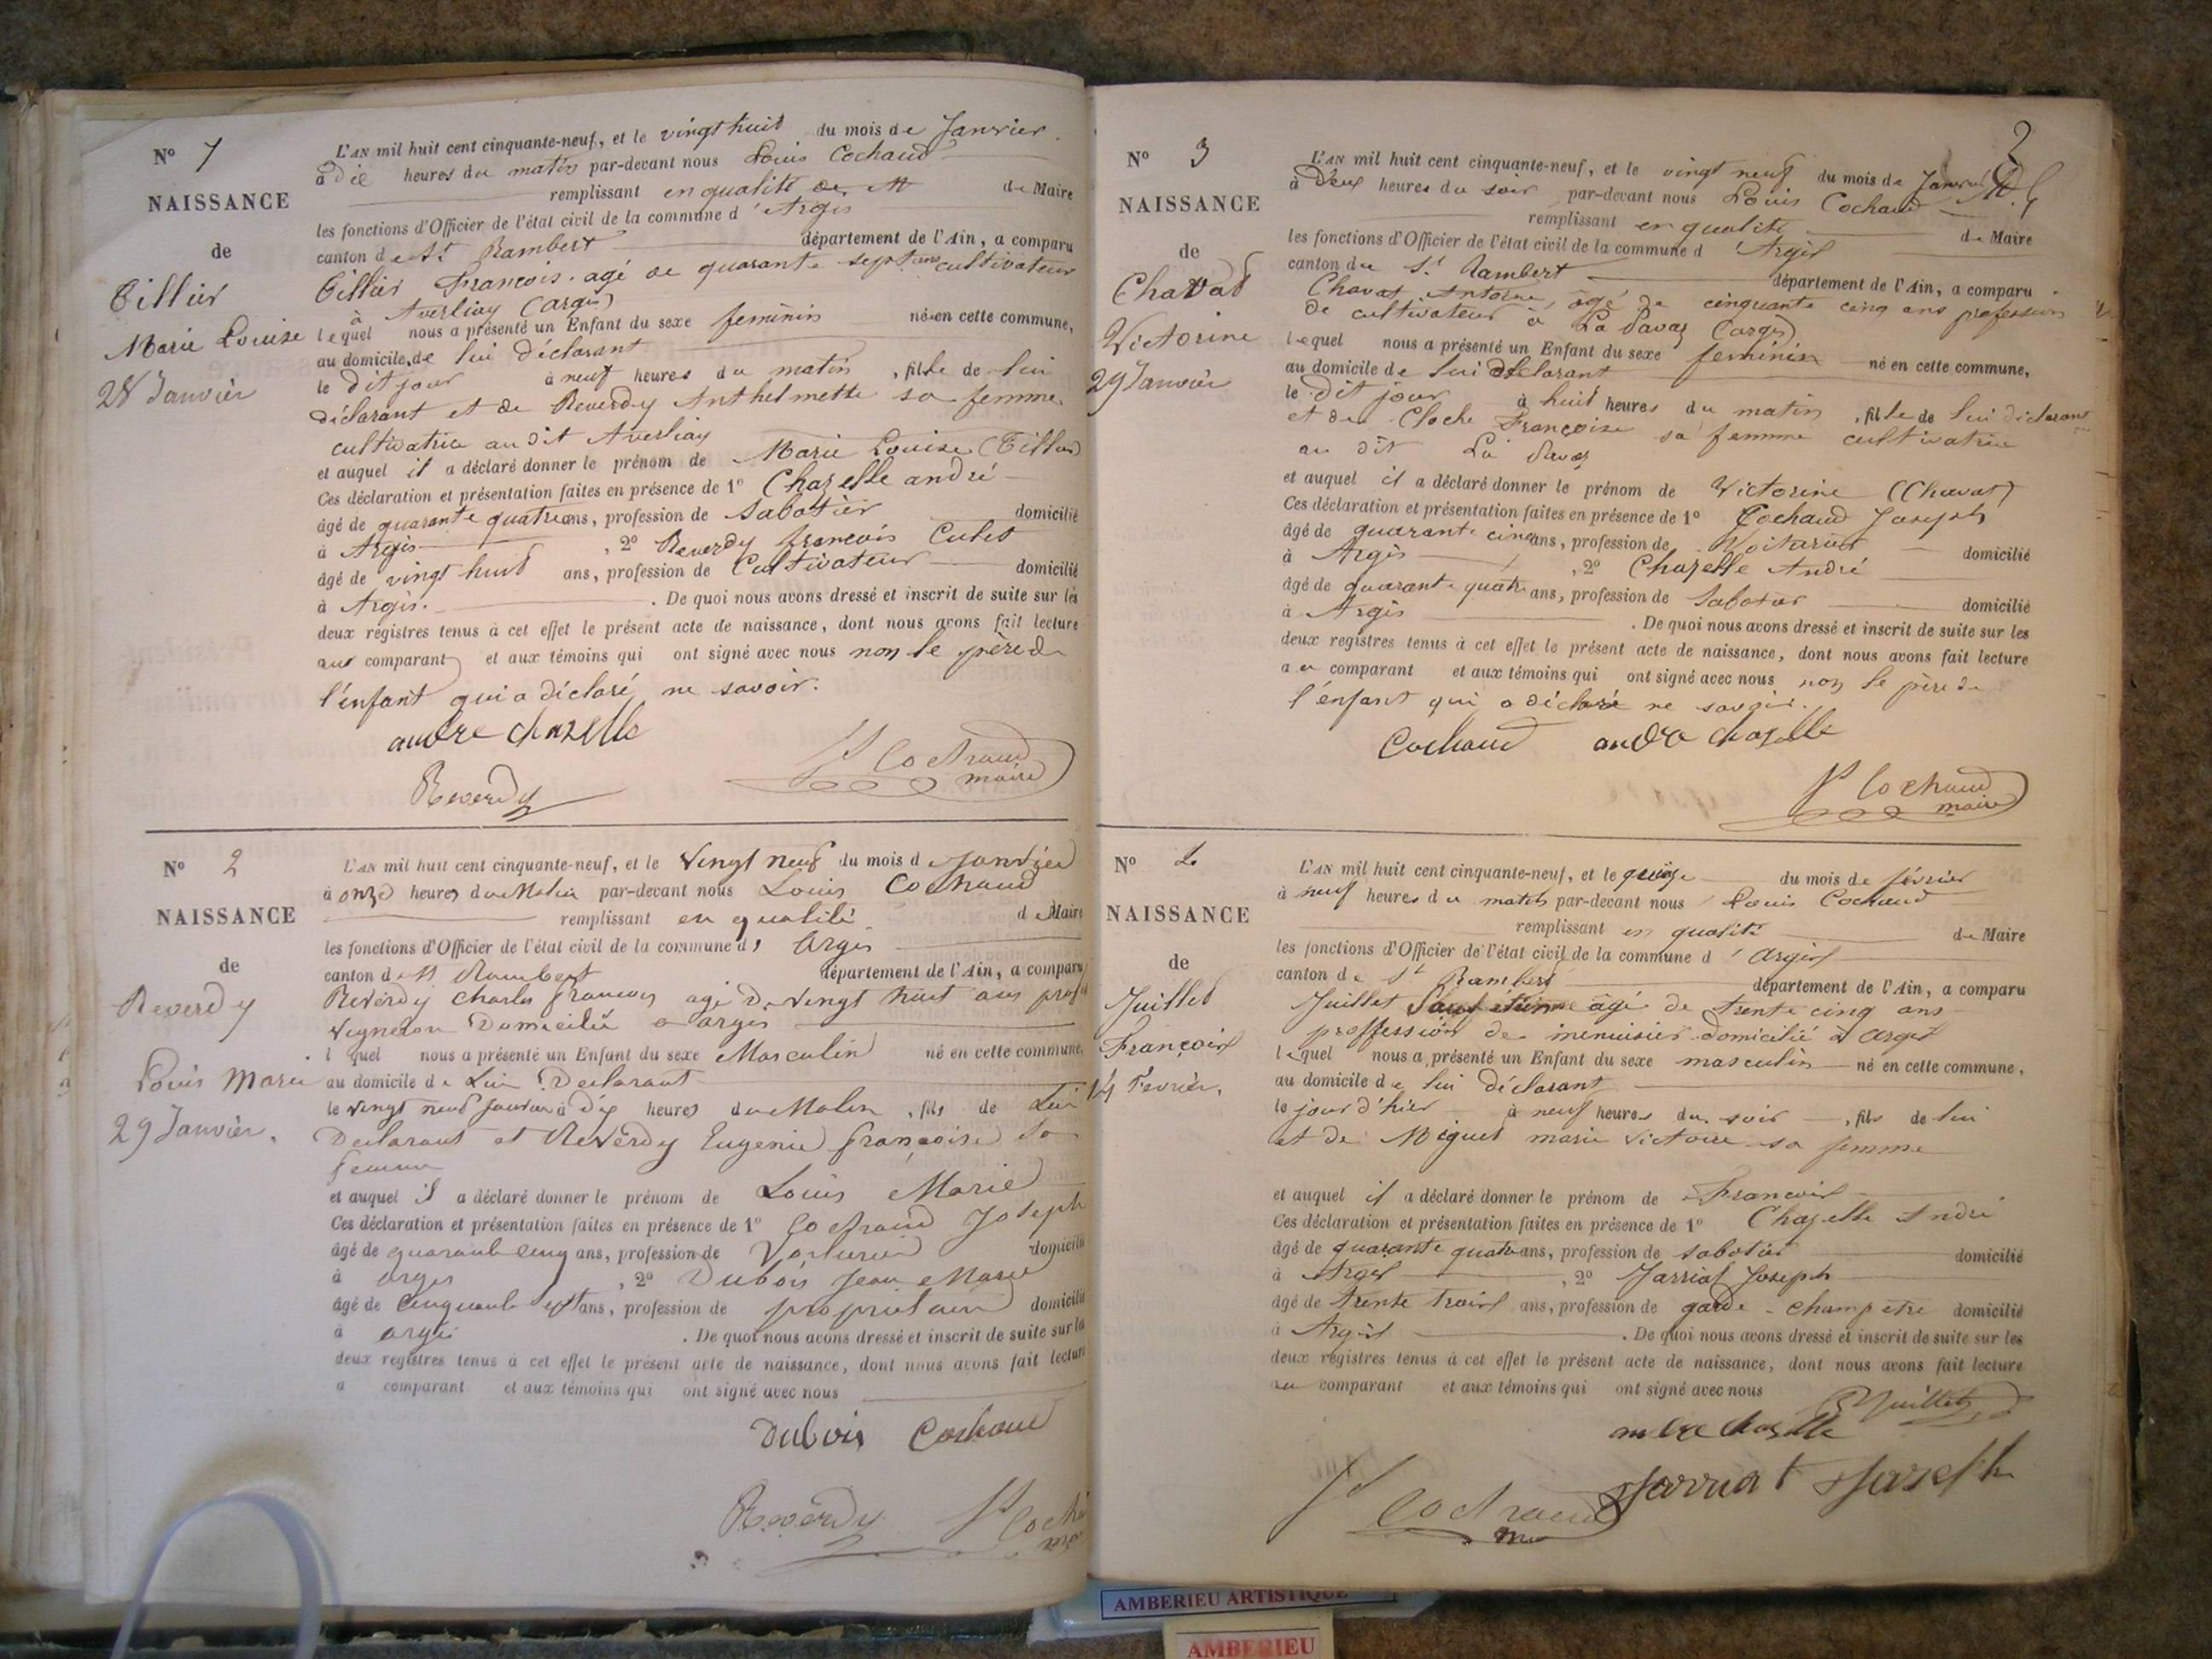 N° 1
NAISSANCE
de
Tillier
Marie Louise
28 Janvier
L'AN mil huit cent cinquante-neuf, et le vingt huit du mois de Janvier
à dix heures du matin par-devant nous Louis Cochaud
remplissant en qualité de Maire
les fonctions d'Officier de l'état civil de la commune d'Argis
canton de St Rambert département de l'Ain, a comparu
Tillier François agé de quarante sept ans cultivateur
à Averliay (argis)
lequel nous a présenté un Enfant du sexe feminin née en cette commune,
au domicile de lui déclarant
le dit jour à neuf heures du matin, fille de lui
déclarant et de Reverdy Anthelmette sa femme
cultivatrice au dit Averliay
et auquel il a déclaré donner le prénom de Marie Louise (Tillier)
Ces déclaration et présentation faites en présence de 1° Chazelle andré
âgé de quarante quatre ans, profession de Sabotier domicilié
à Argis, 2° Reverdy françois Cubet
âgé de vingt huit ans, profession de Cultivateur domicilié
à Argis. De quoi nous avons dressé et inscrit de suite sur les
deux registres tenus à cet effet le présent acte de naissance, dont nous avons fait lecture
aux comparant et aux témoins qui ont signé avec nous non le père de
l'enfant qui a déclaré ne savoir.
andre chazelle
Reverdy
Ls Cochaud
maire
N° 2
NAISSANCE
de
Reverdy
Louis Marie
29 Janvier.
L'AN mil huit cent cinquante-neuf, et le vingt neuf du mois de Janvier
à onze heures du Matin par-devant nous Louis Cochaud
remplissant en qualité de Maire
les fonctions d'Officier de l'état civil de la commune d'Argis
canton de St Rambert département de l'Ain, a comparu
Reverdy Charles françois agé de vingt huit ans prof
vigneron Domicilié a argis
l quel nous a présenté un Enfant du sexe Masculin né en cette commune,
au domicile de Lui Declarant
le vingt neuf Janvier à dix heures du Matin, fils de Lui
Declarant et Reverdy Eugenie françoise Sa
femme
et auquel il a déclaré donner le prénom de Louis Marie
Ces déclaration et présentation faites en présence de 1° Cochaud Joseph
âgé de quarante cinq ans, profession de Voiturier domicilié
à argis, 2° Dubois Jean Marie
âgé de Cinquante sept ans, profession de proprietaire domicilié
à argis. De quoi nous avons dressé et inscrit de suite sur les
deux registres tenus à cet effet le présent acte de naissance, dont nous avons fait lecture
a comparant et aux témoins qui ont signé avec nous
Dubois Cochaud
Reverdy Ls Cocha
2
N° 3
NAISSANCE
de
Chavat
Victorine
29 Janvier
L'AN mil huit cent cinquante-neuf, et le vingt neuf du mois de Janvier
à Deux heures du soir par-devant nous Louis Cochaud
remplissant en qualité de Maire
les fonctions d'Officier de l'état civil de la commune d'Argis
canton de St Rambert département de l'Ain, a comparu
Chavat Antoine, âgé de cinquante cinq ans profession
de cultivateur à La Davaz (argis)
lequel nous a présenté un Enfant du sexe feminin né en cette commune,
au domicile de lui déclarant
le dit jour à huit heures du matin, fille de lui déclarant
et de Cloche Françoise sa femme cultivatrice
au dit La Davaz
et auquel il a déclaré donner le prénom de Victorine (Chavat)
Ces déclaration et présentation faites en présence de 1° Cochaud Joseph
âgé de quarante cinq ans, profession de Voiturier domicilié
à Argis, 2° Chazelle André
âgé de quarante quatre ans, profession de Sabotier domicilié
à Argis. De quoi nous avons dressé et inscrit de suite sur les
deux registres tenus à cet effet le présent acte de naissance, dont nous avons fait lecture
au comparant et aux témoins qui ont signé avec nous non le père de
l'enfant qui a déclaré ne savoir.
Cochaud andre chazelle
Ls Cochaud
maire
N° 4
NAISSANCE
de
Juillet
François
14 Fevrier.
L'AN mil huit cent cinquante-neuf, et le quinze du mois de février
à neuf heures du matin par-devant nous Louis Cochaud
remplissant en qualité de Maire
les fonctions d'Officier de l'état civil de la commune d'argis
canton de St Rambert département de l'Ain, a comparu
Juillet étienne âgé de trente cinq ans
proffession de menuisier domicilié à argis
lequel nous a présenté un Enfant du sexe masculin né en cette commune,
au domicile de lui déclarant
le jour d'hier à neuf heures du soir, fils de lui
et de Miguet marie victoire sa femme
et auquel il a déclaré donner le prénom de François
Ces déclaration et présentation faites en présence de 1° Chazelle André
âgé de quarante quatre ans, profession de sabotier domicilié
à Argis, 2° Jarriat Joseph
âgé de trente trois ans, profession de garde-champetre domicilié
à Argis. De quoi nous avons dressé et inscrit de suite sur les
deux registres tenus à cet effet le présent acte de naissance, dont nous avons fait lecture
au comparant et aux témoins qui ont signé avec nous
Juillet
andre chazelle
Jarriat Joseph
Ls Cochaud
AMBERIEU ARTISTIQUE
AMBERIEU